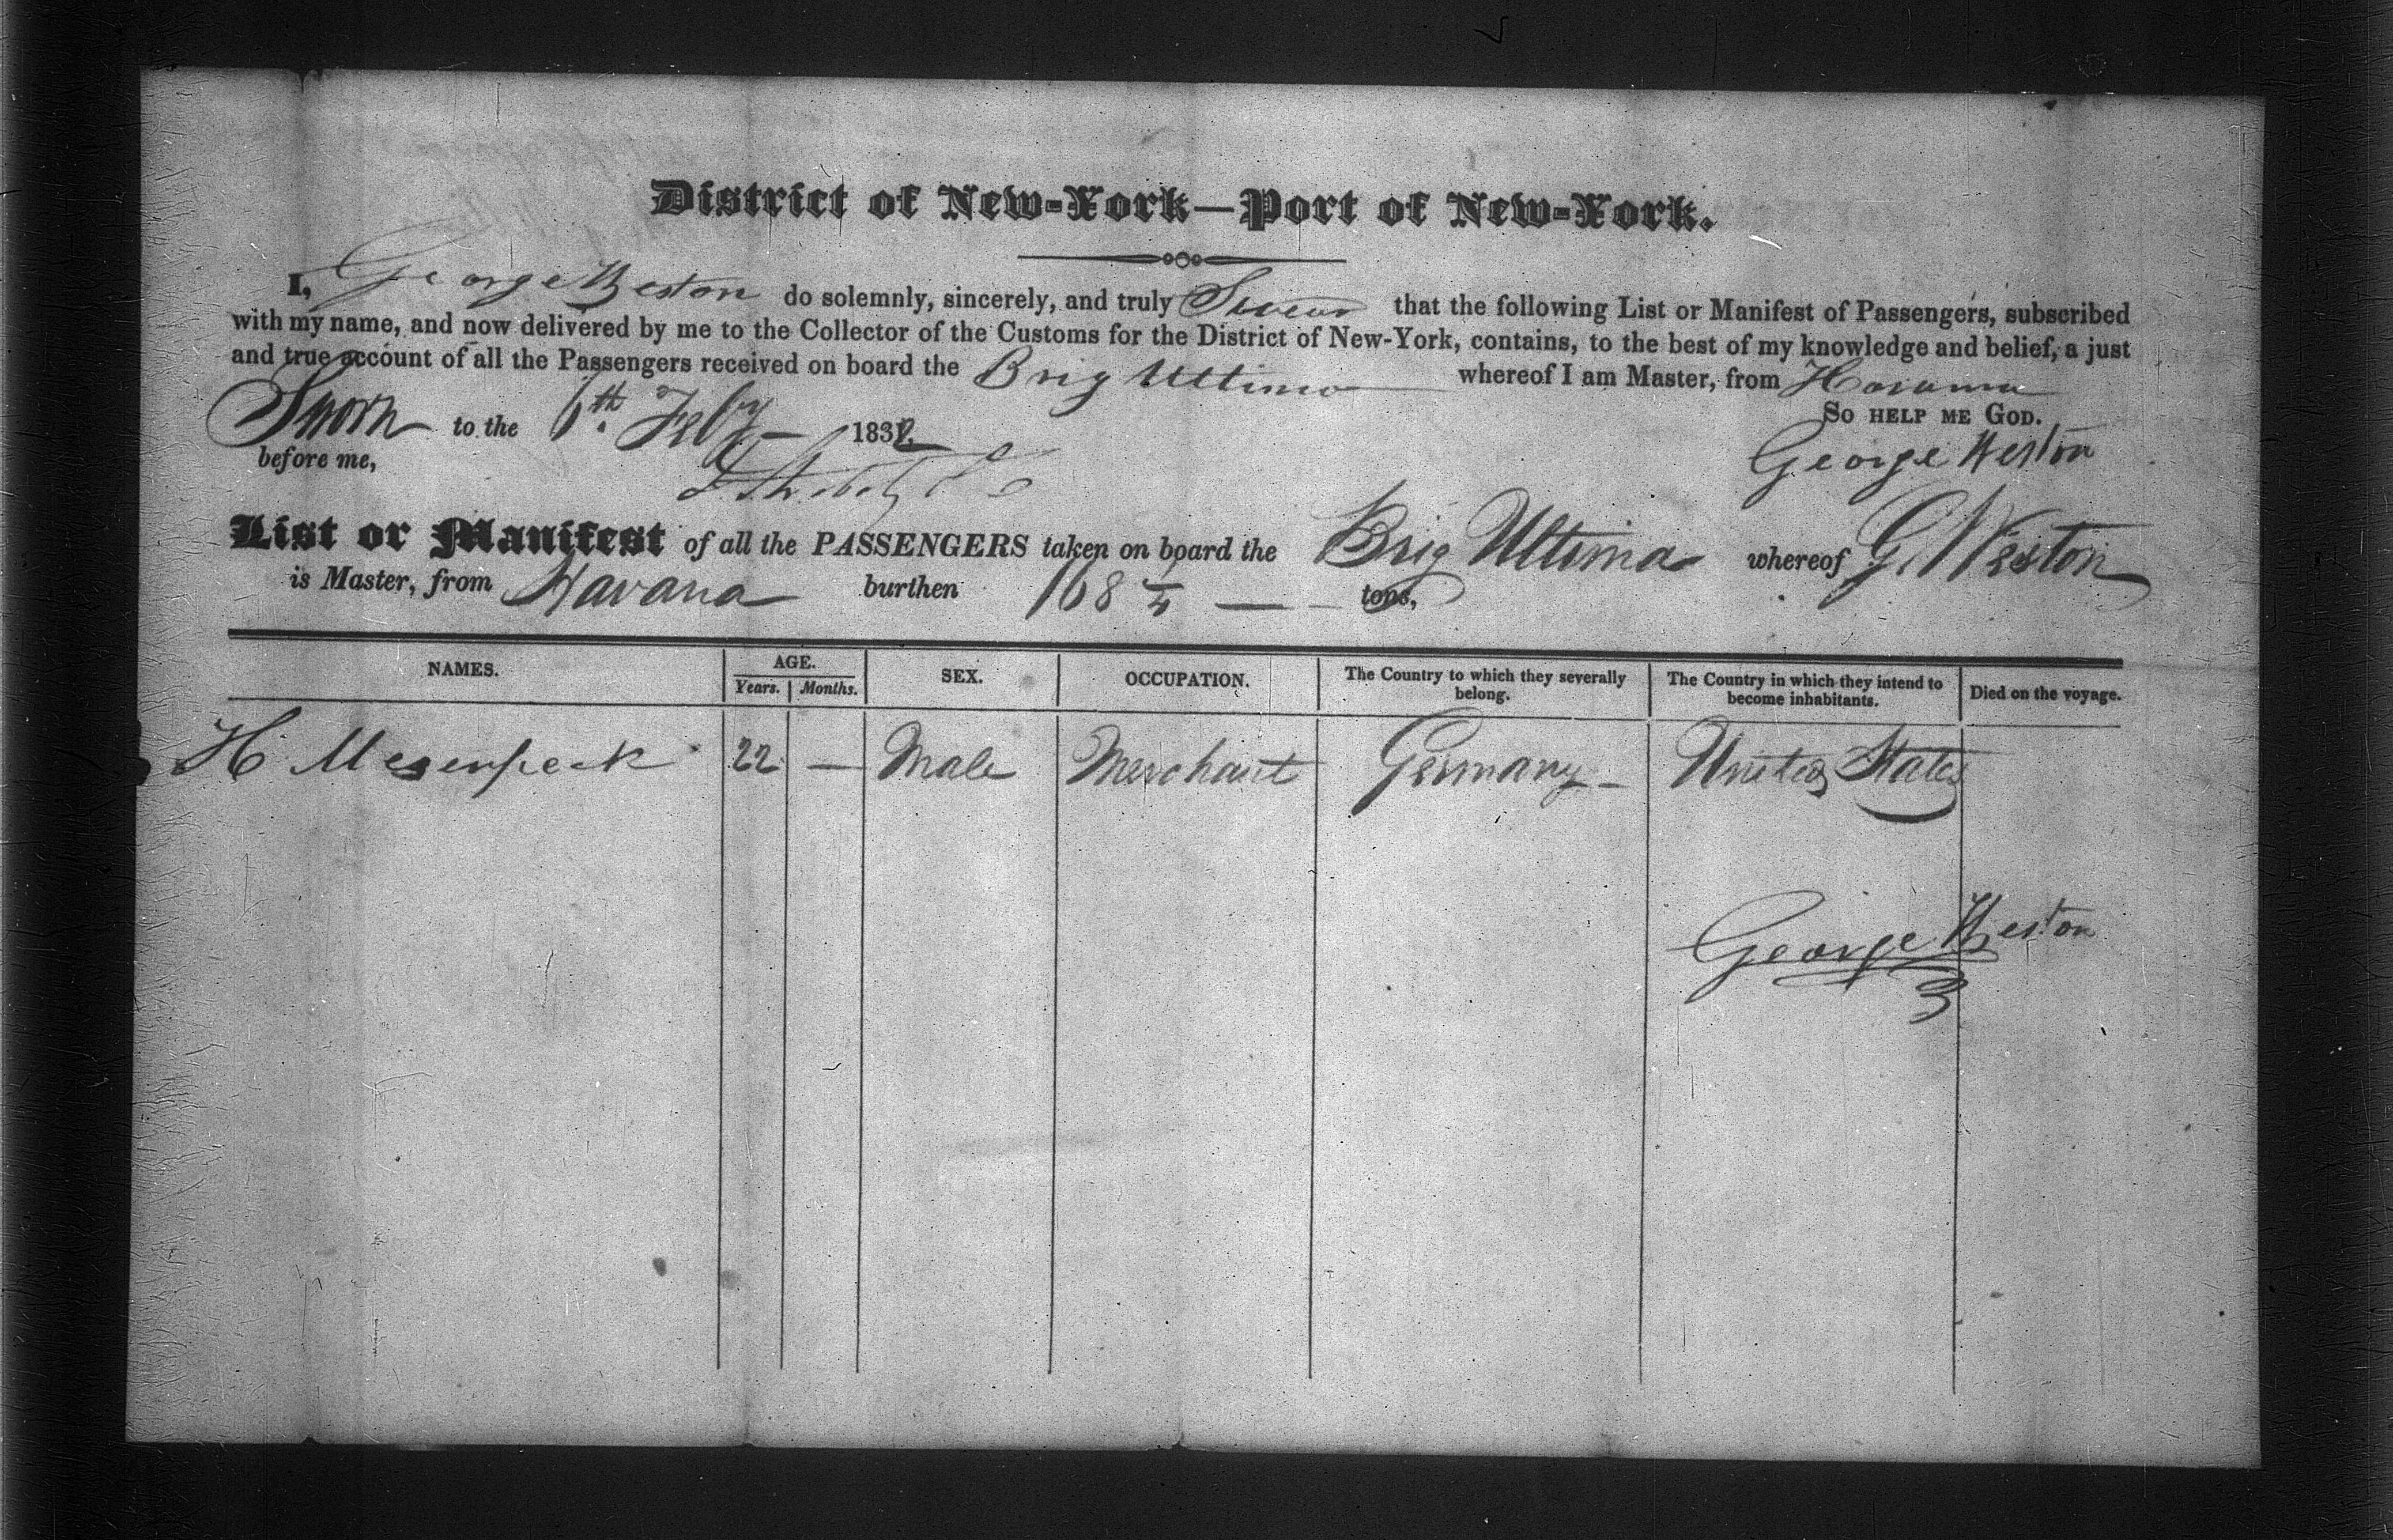 District of New-York—Port of New-York.
I, George Weston do solemnly, sincerely, and truly Swear that the following List or Manifest of Passengers, subscribed
with my name, and now delivered by me to the Collector of the Customs for the District of New-York, contains, to the best of my knowledge and belief, a just
and true account of all the Passengers received on board the Brig Ultima whereof I am Master, from Havana
So HELP ME GOD.
Sworn to the 6th. Feby - 1832
before me,
George Weston
List or Manifest of all the PASSENGERS taken on board the Brig Ultima whereof G. Weston
is Master, from Havana burthen 168 tons,
NAMES. AGE. SEX. OCCUPATION. The Country to which they severally belong. The Country in which they intend to become inhabitants. Died on the voyage.
Years. Months.
H. 22 — Male Merchant Germany - United States
George Weston